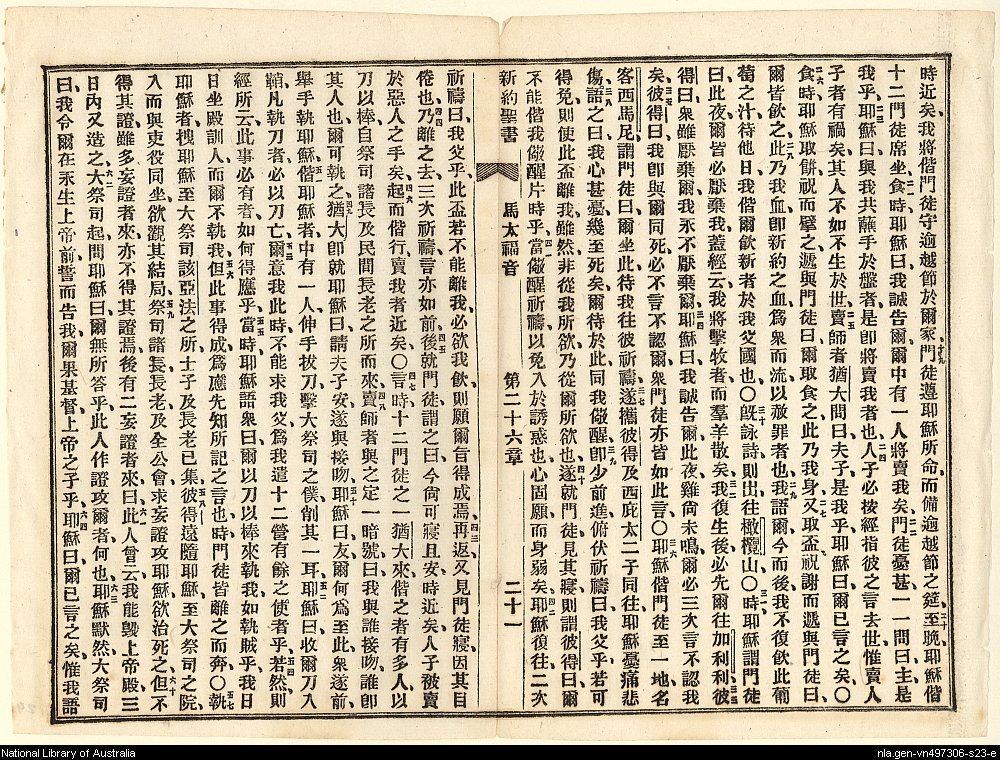 時近矣我將偕門徒守逾越節於爾家門徒遵耶穌所命而備逾越節之筵至晚耶穌偕
十二門徒席坐食時耶穌曰我誠告爾爾中有一人將賣我矣門徒憂甚一一問曰主是
我乎耶穌曰與我共蘸手於盤者是卽將賣我者也人子必按經指彼之言去世惟賣人
子者有禍矣其人不如不生於世賣師者猶大問曰夫子是我乎耶穌曰爾已言之矣〇
食時耶穌取餅祝而擘之遞與門徒曰爾取食之此乃我身又取盃祝謝而遞與門徒曰
爾皆飲之此乃我血卽新約之血爲衆而流以赦罪者也我語爾今而後我不復飲此葡
萄之汁待他日我偕爾飲新者於我父國也〇旣詠詩則出往橄欖山〇時耶穌謂門徒
曰此夜爾皆必厭棄我蓋經云我將擊牧者而羣羊散矣我復生後必先爾往加利利彼
得曰衆雖厭棄爾我永不厭棄爾耶穌曰我誠告爾此夜雞尙未鳴爾必三次言不認我
矣彼得曰我卽與爾同死必不言不認爾衆門徒亦皆如此言〇耶穌偕門徒至一地名
客西馬尼謂門徒曰爾坐此待我往彼祈禱遂攜彼得及西庇太二子同往耶穌憂痛悲
傷語之曰我心甚憂幾至死矣爾待於此同我儆醒卽少前進俯伏祈禱曰我父乎若可
得免則使此盃離我雖然非從我所欲乃從爾所欲也遂就門徒見其寢則謂彼得曰爾
不能偕我儆醒片時乎當儆醒祈禱以免入於誘惑也心固願而身弱矣耶穌復往二次
新約聖書 馬太福音 第二十六章 二十一
祈禱曰我父乎此盃若不能離我必欲我飲則願爾旨得成焉再返又見門徒寢因其目
倦也乃離之去三次祈禱言亦如前後就門徒謂之曰今尙可寢且安時近矣人子被賣
於惡人之手矣起而偕行賣我者近矣〇言時十二門徒之一猶大來偕之者有多人以
刀以棒自祭司諸長及民間長老之所而來賣師者與之定一暗號曰我與誰接吻誰卽
其人也爾可執之猶大卽就耶穌曰請夫子安遂與接吻耶穌曰友爾何爲至此衆遂前
舉手執耶穌偕耶穌者中有一人伸手拔刀擊大祭司之僕削其一耳耶穌曰收爾刀入
鞘凡執刀者必以刀亡爾意我此時不能求我父爲我遣十二營有餘之使者乎若然則
經所云此事必有者如何得應乎當時耶穌語衆曰爾以刀以棒來執我如執賊乎我日
日坐殿訓人而爾不執我但此事得成爲應先知所記之言也時門徒皆離之而奔〇執
耶穌者拽耶穌至大祭司該亞法之所士子及長老已集彼得遠隨耶穌至大祭司之院
入而與吏役同坐欲觀其結局祭司諸長長老及全公會求妄證攻耶穌欲治死之但不
得其證雖多妄證者來亦不得其證焉後有二妄證者來曰此人曾云我能毀上帝殿三
日內又造之大祭司起問耶穌曰爾無所答乎此人作證攻爾者何也耶穌默然大祭司
曰我令爾在永生上帝前誓而告我爾果基督上帝之子乎耶穌曰爾已言之矣惟我語
National Library of Australia
nla.gen-vn497306-s23-e